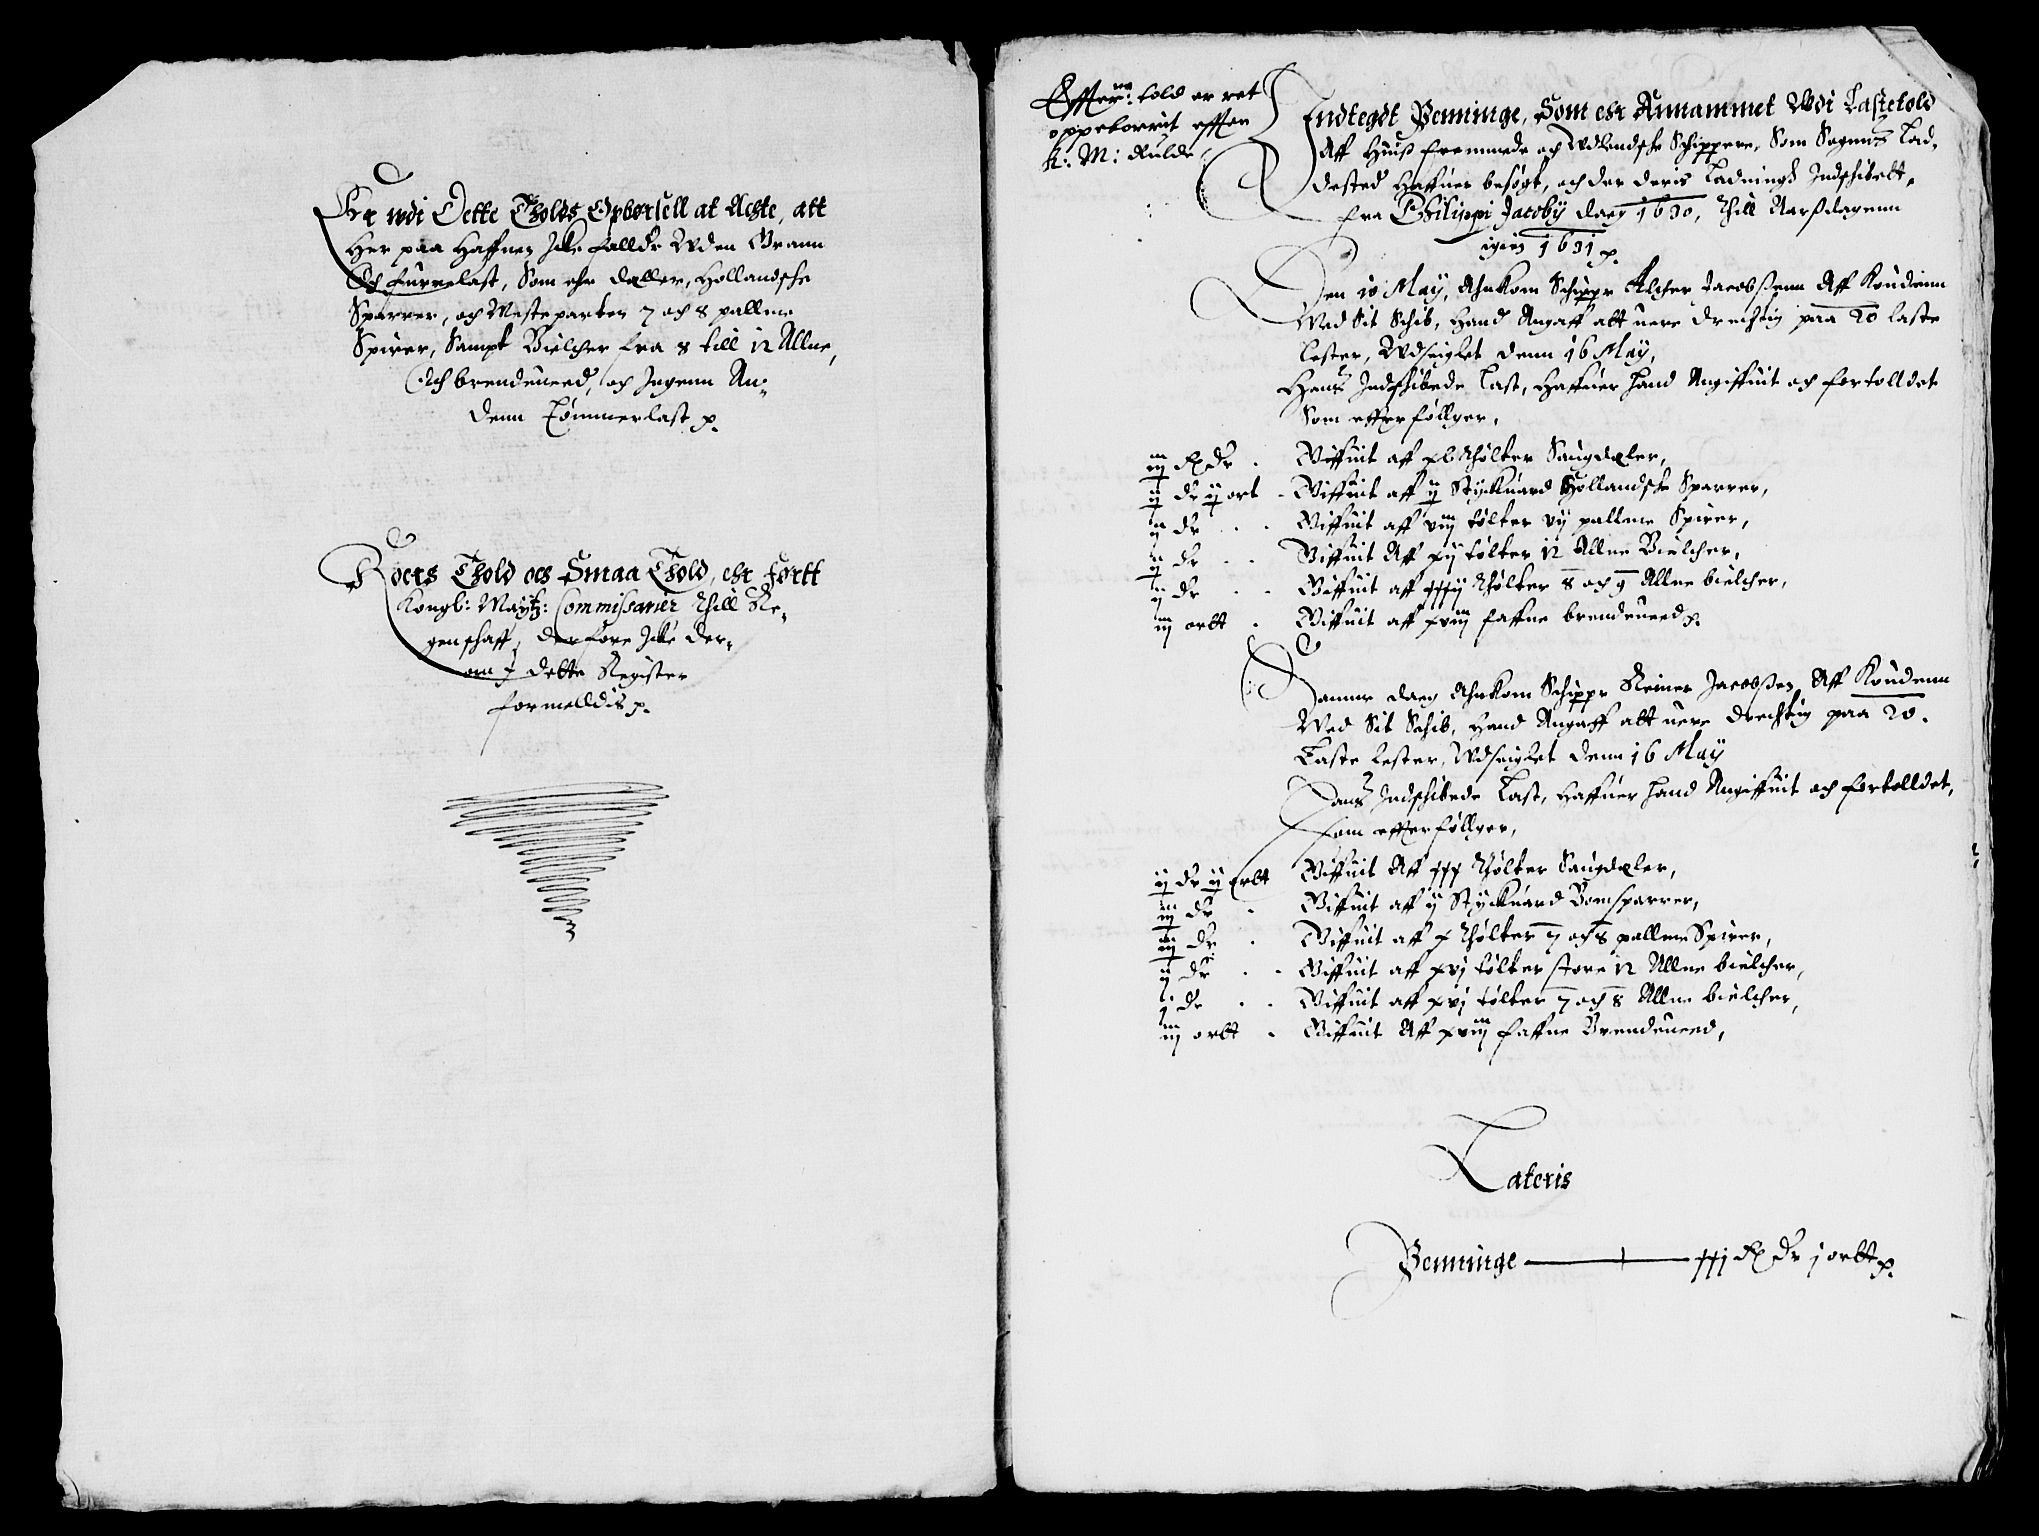 Er udi Dette Tholds Opbørsell at Achte, att
Her paa Haffner Icke falldr Uden Grann
Och furrelast, Som ehr daller, Hollandsche
Sparrer, och Mesteparten 7 och 8 pallme
Spirer, Sampt Bielcher fra 8 till 12 Allne,
Och brendeueed, och Ingenn An-
denn Tømmerlast p.
Roers Thold oc Smaa Thold, ehr førtt
Kongl: Maytz: Commissarier Thill Re-
genschaff, derfore Icke der-
om I dette Register
formelldis p.
told er ret
oppeborrit effter
K: M: Rulde
Indtegdt Penninge, Som ehr Annammet Udi Lastetold
Aff Huis fremmede och Udlendsche Schippere, Som Sognis Lad-
dested Haffuer besøgt, och der deris Ladning Indschibett,
fra Philippi Jacoby daeg 1630, Thill Aarsdagenn
igien 1631 p.
Den 10 May, Ahnkom Schippr Alcher Jacobsenn Aff Koudenn
Med Sit Schib, Hand Angaff att uere drechtig paa 20 laste
Lester, Udseiglet denn 16 May,
Hans Indschibede Last, Haffuer hand Angiffuit och fortolldet
Som effterføllger,
iiij Rx Dr . Giffuit aff xl Thølter Saugdeler,
ij Dr ij ort . Giffuit aff ij Styckuard Hollandsche Sparrer,
ij Dr . . Giffuit aff viij tølter vij pallme Spirer,
ij Dr . . Giffuit Aff xij tølter 12 Allne Bielcher,
ij Dr . . Giffuit aff xxxij Thølter 8 och 9 Allne bielcher,
iij ortt . Giffuit aff xviij faffne brendeueed p.
Samme daeg Ahnkom Schippr Reiner Jacobsen Aff Koudenn
Med Sit Schib, Hand Angaff att uere drechtig paa 20.
Laste Lester, Udseiglet denn 16 May
Hans Indschibede Last, Haffuer hand Angiffuit och fortolldet,
som effterføllger,
ij Dr ij ortt Giffuit Aff xxx Thølter Saugdeler,
iij Dr . Giffuit aff ij Styckuard Bomsparrer,
iij Dr . Giffuit aff x Thølter 7 och 8 pallme Spirer,
ij Dr . . Giffuit aff xvj tølter store 12 Allne bielcher,
j Dr . . Giffuit aff xvj tølter 7 och 8 Allne bielcher,
iij ortt . Giffuit Aff xviij faffne Brendeueed,
Lateris
Penninge — xxj Rx Dr j ortt p.